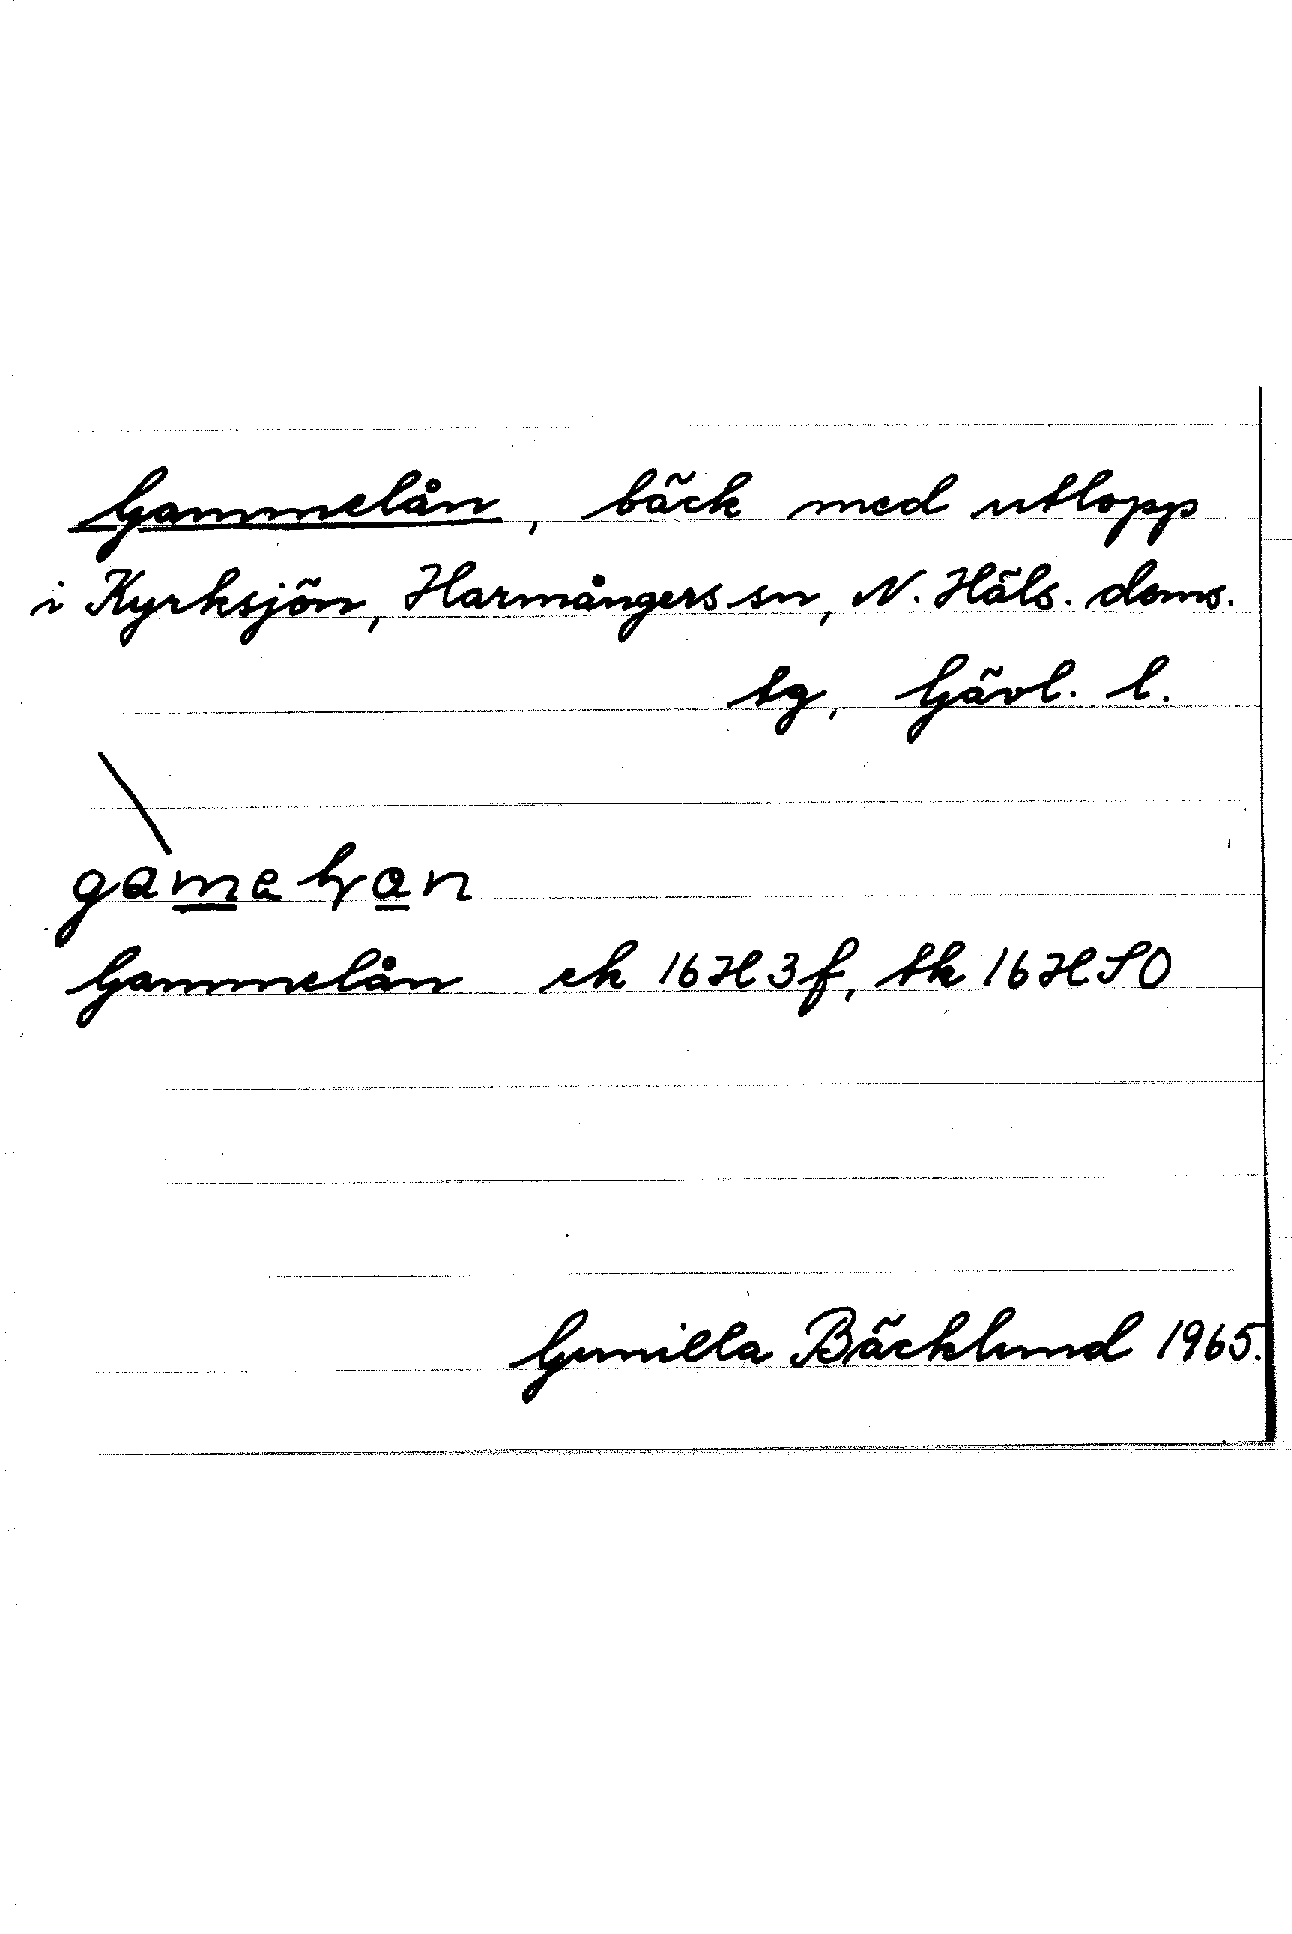 Gammelån, bäck med utlopp
i Kyrksjön, Harmångers sn, N. Häls. doms.
tg, Gävl. l.
Gammelån ek 16H3f, tk 16H SO
Gunilla Bäcklund 1965.